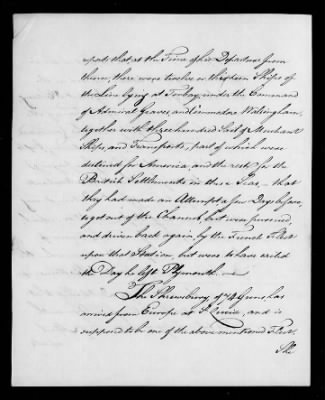 reports that at the Time of his Departure from
them, there were twelve or thirteen Ships of
the Line lying at Torbay, under the Command
of Admiral Graves, and Commodore Walsingham,
together with three hundred Sail of Merchant
Ships, and Transports, part of which were
destined for America and the rest for the
British Settlements in these Seas, — that
they had made an Attempt a few Days before,
to get out of the Channel, but were pursued,
and driven back again, by the French Fleet
upon that Station, but were to have sailed
the Day he left Plymouth. —
The Shrewsbury of 74 Guns has
arrived from Europe at St. Lucia, and is
supposed to be one of the above mentioned Fleet.
She